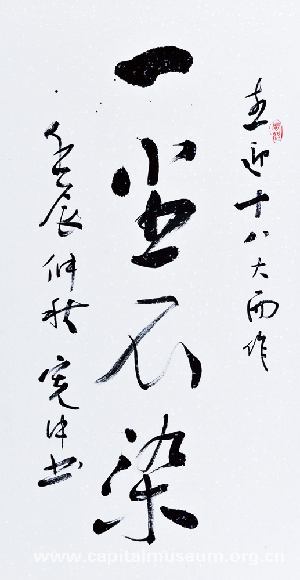 喜迎十八大而作
一尘不染
壬辰仲秋 宪中书
www.capitalmuseum.org.cn